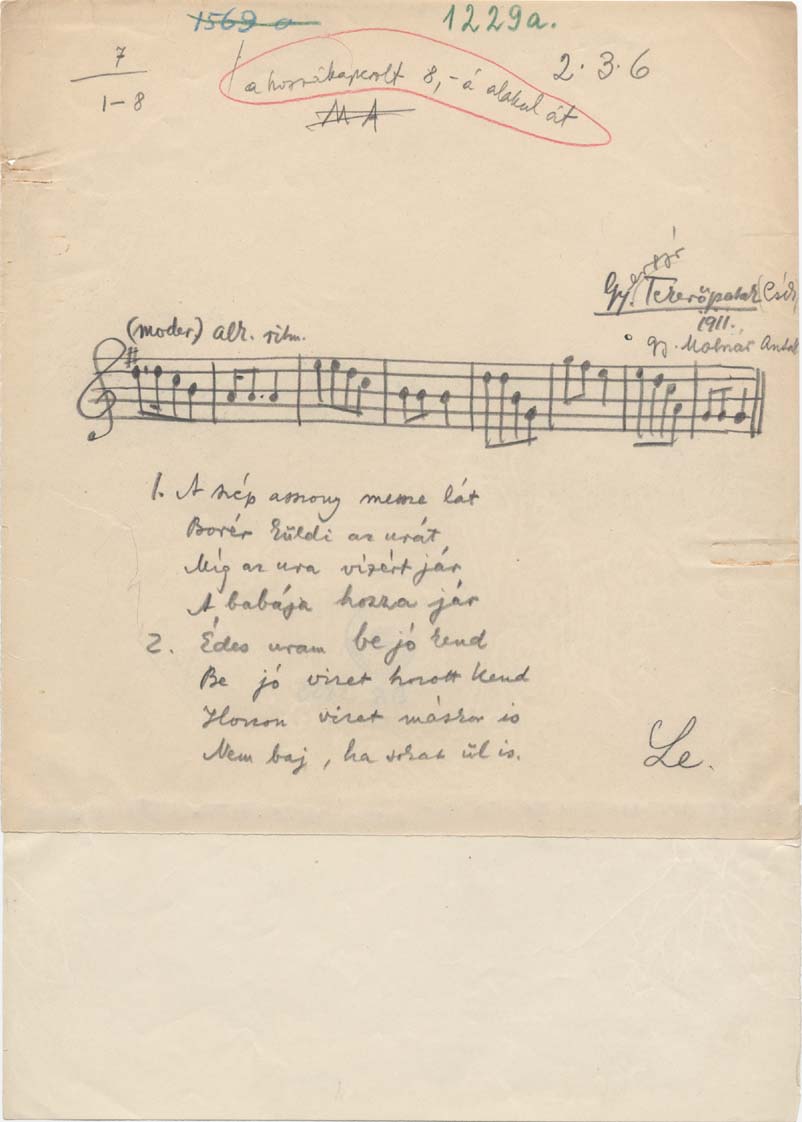 1569 a
1229a.
7
1-8
a hozzákapcsolt 8,-á alakul át
2. 3. 6
MA
Gy. Tekerőpatak (Csík)
1911.
gy. Molnár Antal
(moder.) alk. ritm.
1. A szép asszony messze lát
Borér küldi az urát
Míg az ura vizért jár
A babája hozza jár
2. Édes uram be jó kend
Be jó vizet hozott kend
Hozzon vizet máskor is
Nem baj, ha sokat ül is.
Le.